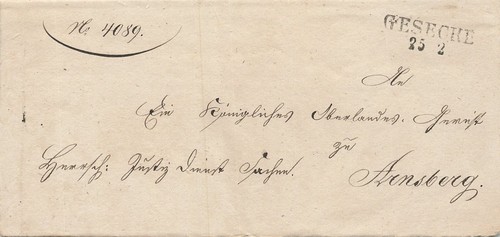 No 4089.
GESECKE
25 2
An
Ein Königliches Oberlandes-Gericht
zu
Herrsch: Justiz Dienst Sachen.
Arnsberg.